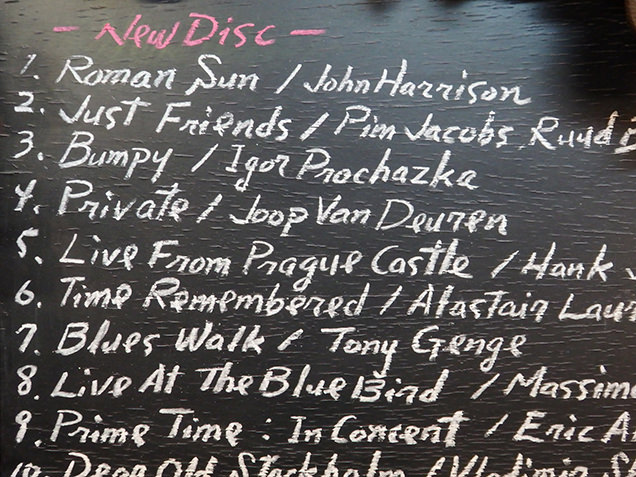 - New Disc -
1. Roman Sun / John Harrison
2. Just Friends / Pim Jacobs Ruud
3. Bumpy / Igor Prochazka
4. Private / Joop Van Deuren
5. Live From Prague Castle / Hank
6. Time Remembered / Alastair
7. Blues Walk / Tony Genge
8. Live At The Blue Bird / Massimo
9. Prime Time : In Concert / Eric
10. Dear Old Stockholm / Vladimir